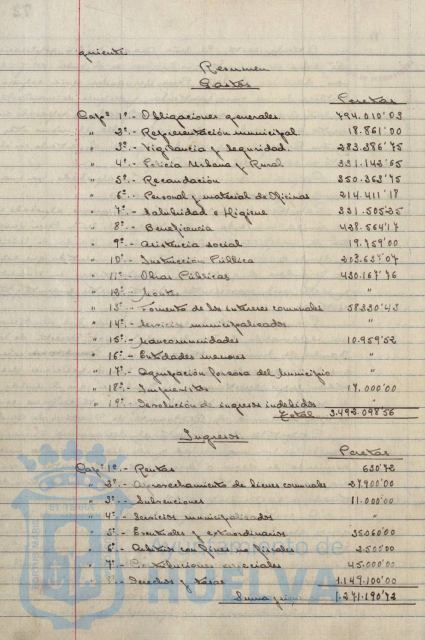 quiente
Resumen
Gastos
Pesetas
Capº 1º.- Obligaciones generales 794.010'03
" 2º.- Representación municipal 18.861'00
" 3º.- Vigilancia y seguridad 283.386'75
" 4º.- Policia Urbana y Rural 331.142'65
" 5º.- Recaudación 350.363'75
" 6º.- Personal y material de Oficinas 214.411'18
" 7º.- Salubridad e Higiene 331.505'25
" 8º.- Beneficencia 428.564'17
" 9º.- Asistencia social 19.759'00
" 10º.- Instrucción Pública 203.637'07
" 11º.- Obras Públicas 430.167'76
" 12º.- Montes "
" 13º.- Fomento de los intereses comunales 58330'43
" 14º.- Servicios municipalizados "
" 15º.- Mancomunidades 10.959'52
" 16º.- Entidades menores "
" 17º.- Agrupación forzosa del Municipio "
" 18º.- Imprevistos 17.000'00
" 19º.- Devolución de ingresos indebidos "
Total 3.492.098'56
Ingresos
Pesetas
Capº 1º.- Rentas 630'72
" 2º.- Aprovechamiento de bienes comunales 27.900'00
" 3º.- Subvenciones 11.000'00
" 4º.- Servicios municipalizados "
" 5º.- Eventuales y extraordinarios 35060'00
" 6º.- Arbitrios con fines no fiscales 2.500'00
" 7º.- Contribuciones especiales 45.000'00
" 8º.- Derechos y tasas 1.149.100'00
Suma y sigue 1.271.190'72
HUELVA